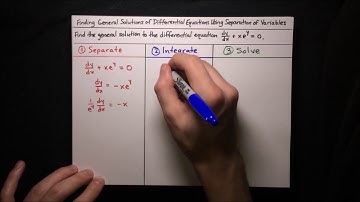 Finding General Solutions of Differential Equations Using Separation of Variables
Find the general solution to the differential equation dy/dx + xe^y = 0.
① Separate
② Integrate
③ Solve
dy/dx + xe^y = 0
dy/dx = -xe^y
1/e^y dy/dx = -x